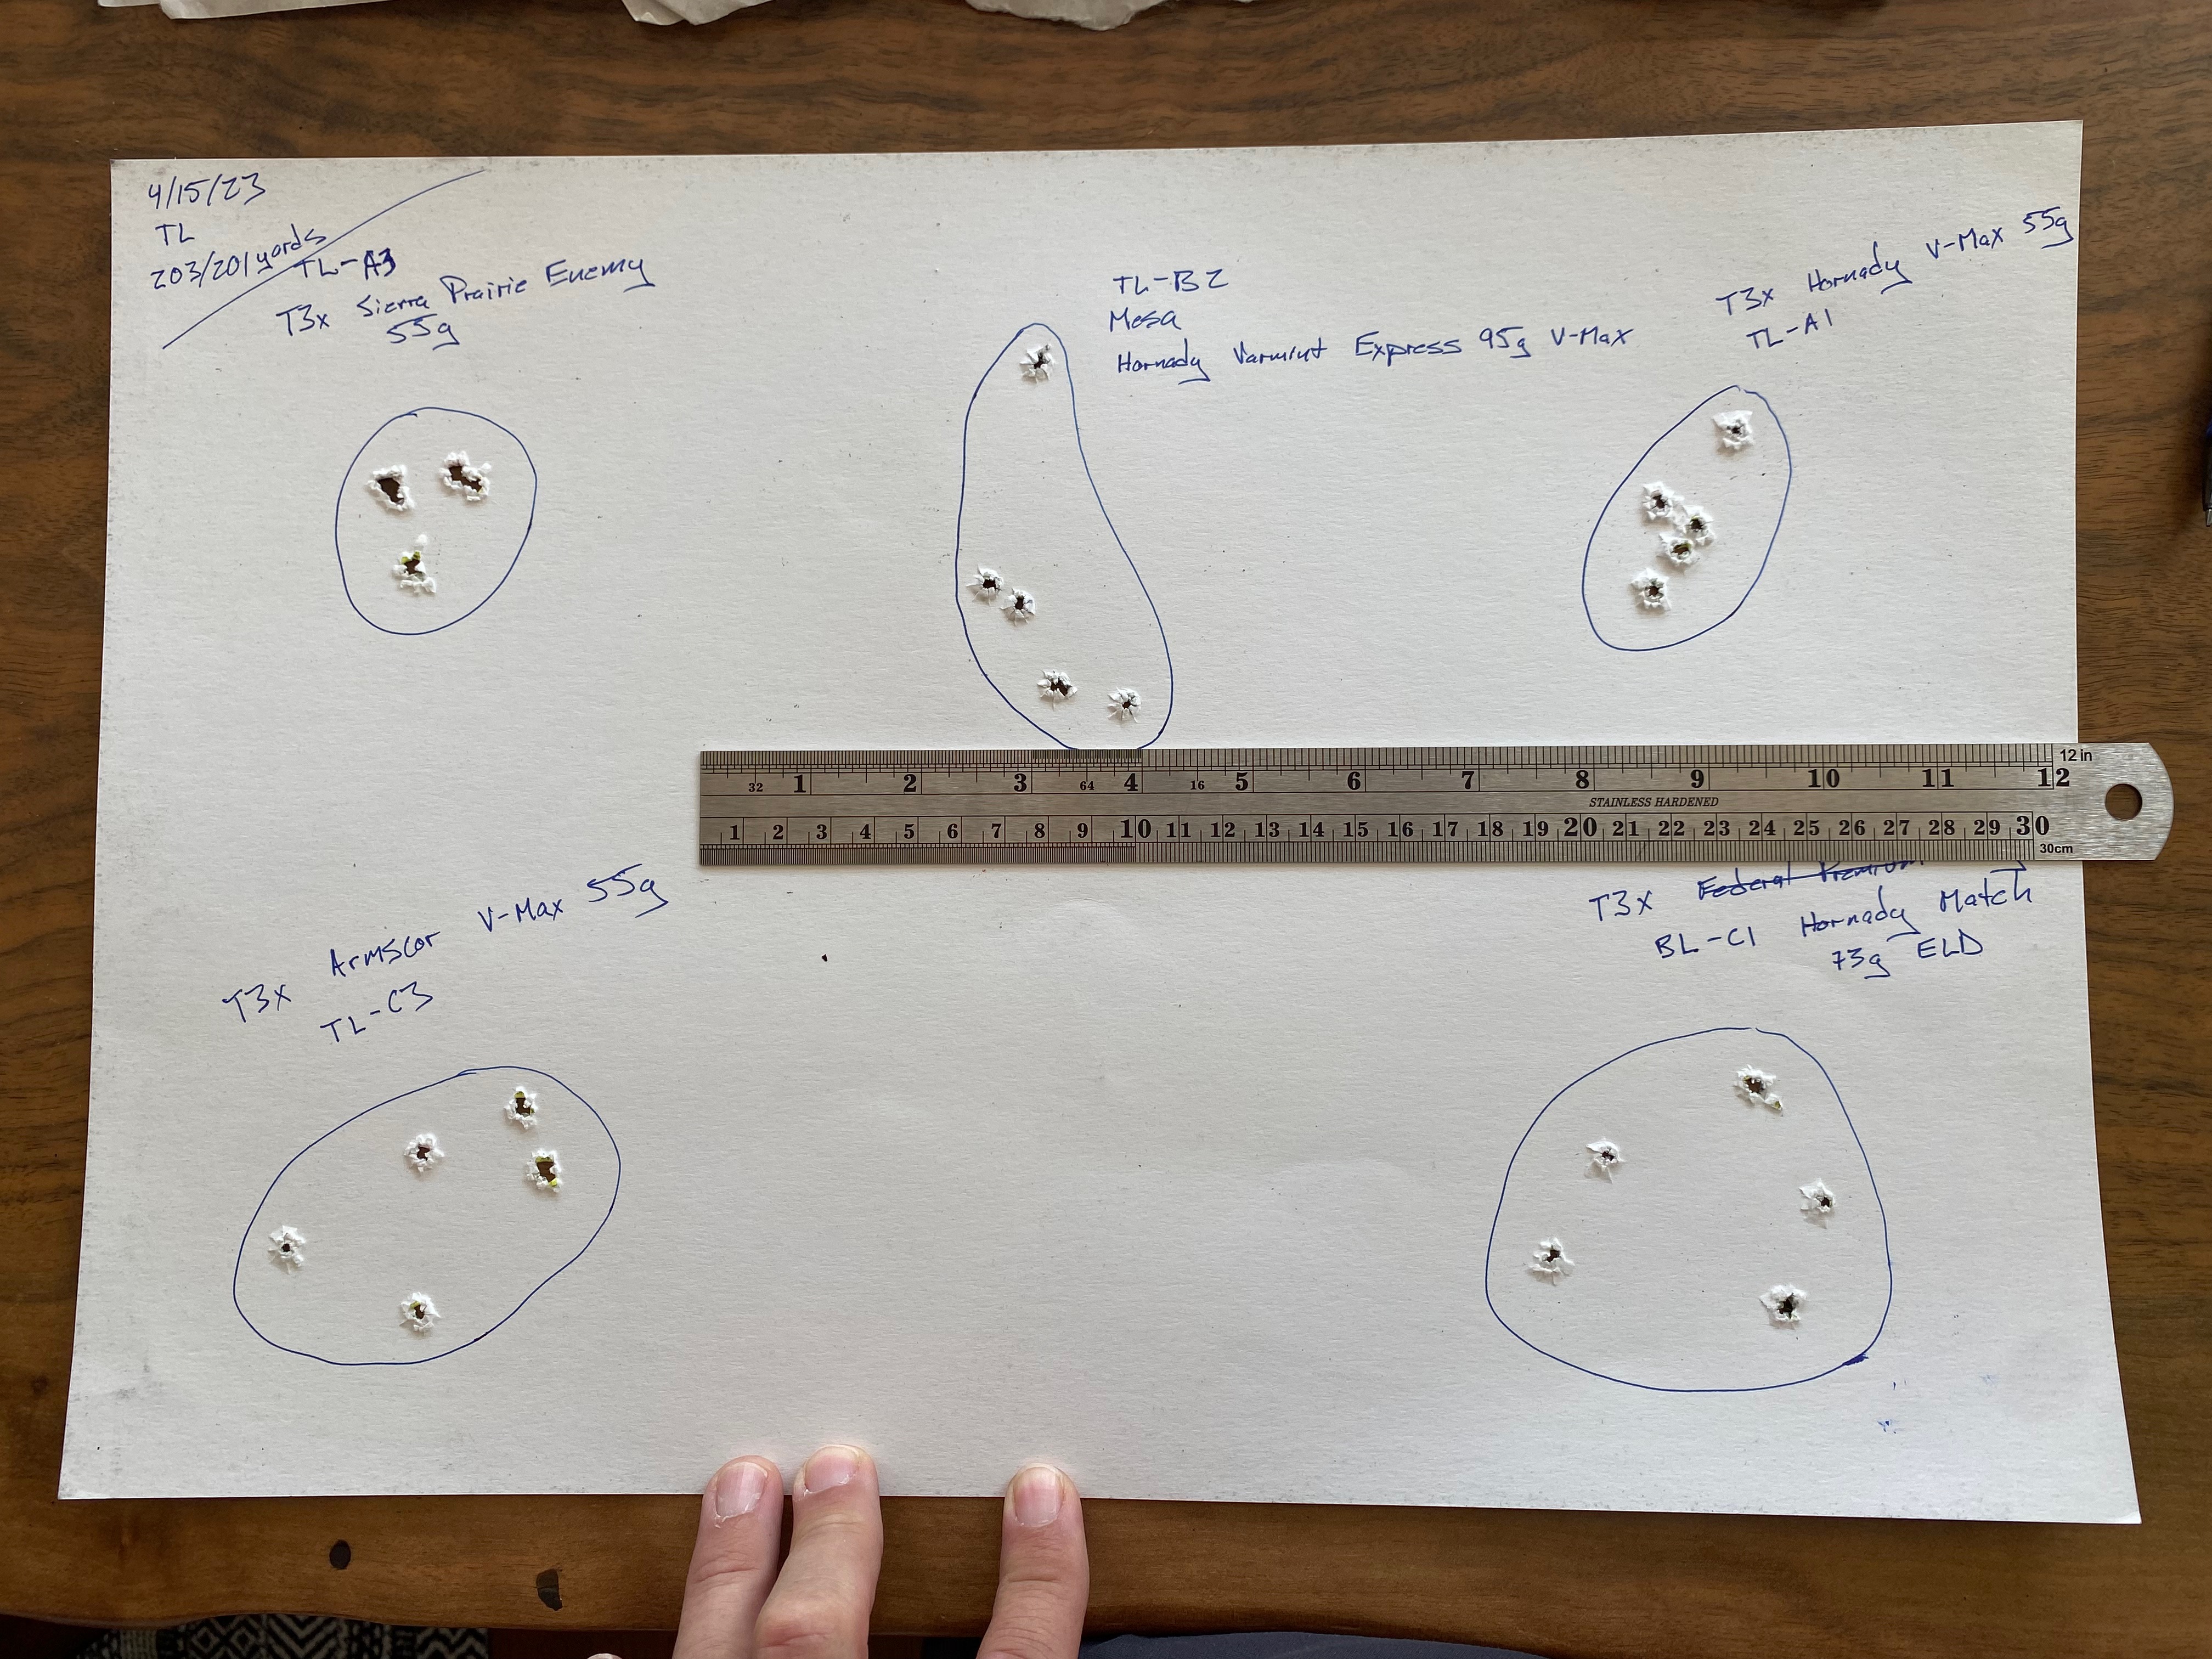 4/15/23
TL
203/201 yards
TL-A3
T3x Sierra Prairie Enemy
55g
TL-B2
Mesa
Hornady Varmint Express 95g V-Max
T3x Hornady V-Max 55g
TL-A1
1 2 3 4 5 6 7 8 9 10 11 12
32 64 16
12 in
STAINLESS HARDENED
1 2 3 4 5 6 7 8 9 10 11 12 13 14 15 16 17 18 19 20 21 22 23 24 25 26 27 28 29 30
30cm
T3x Armscor V-Max 55g
TL-C3
T3x Federal Premium
BL-C1 Hornady Match
73g ELD